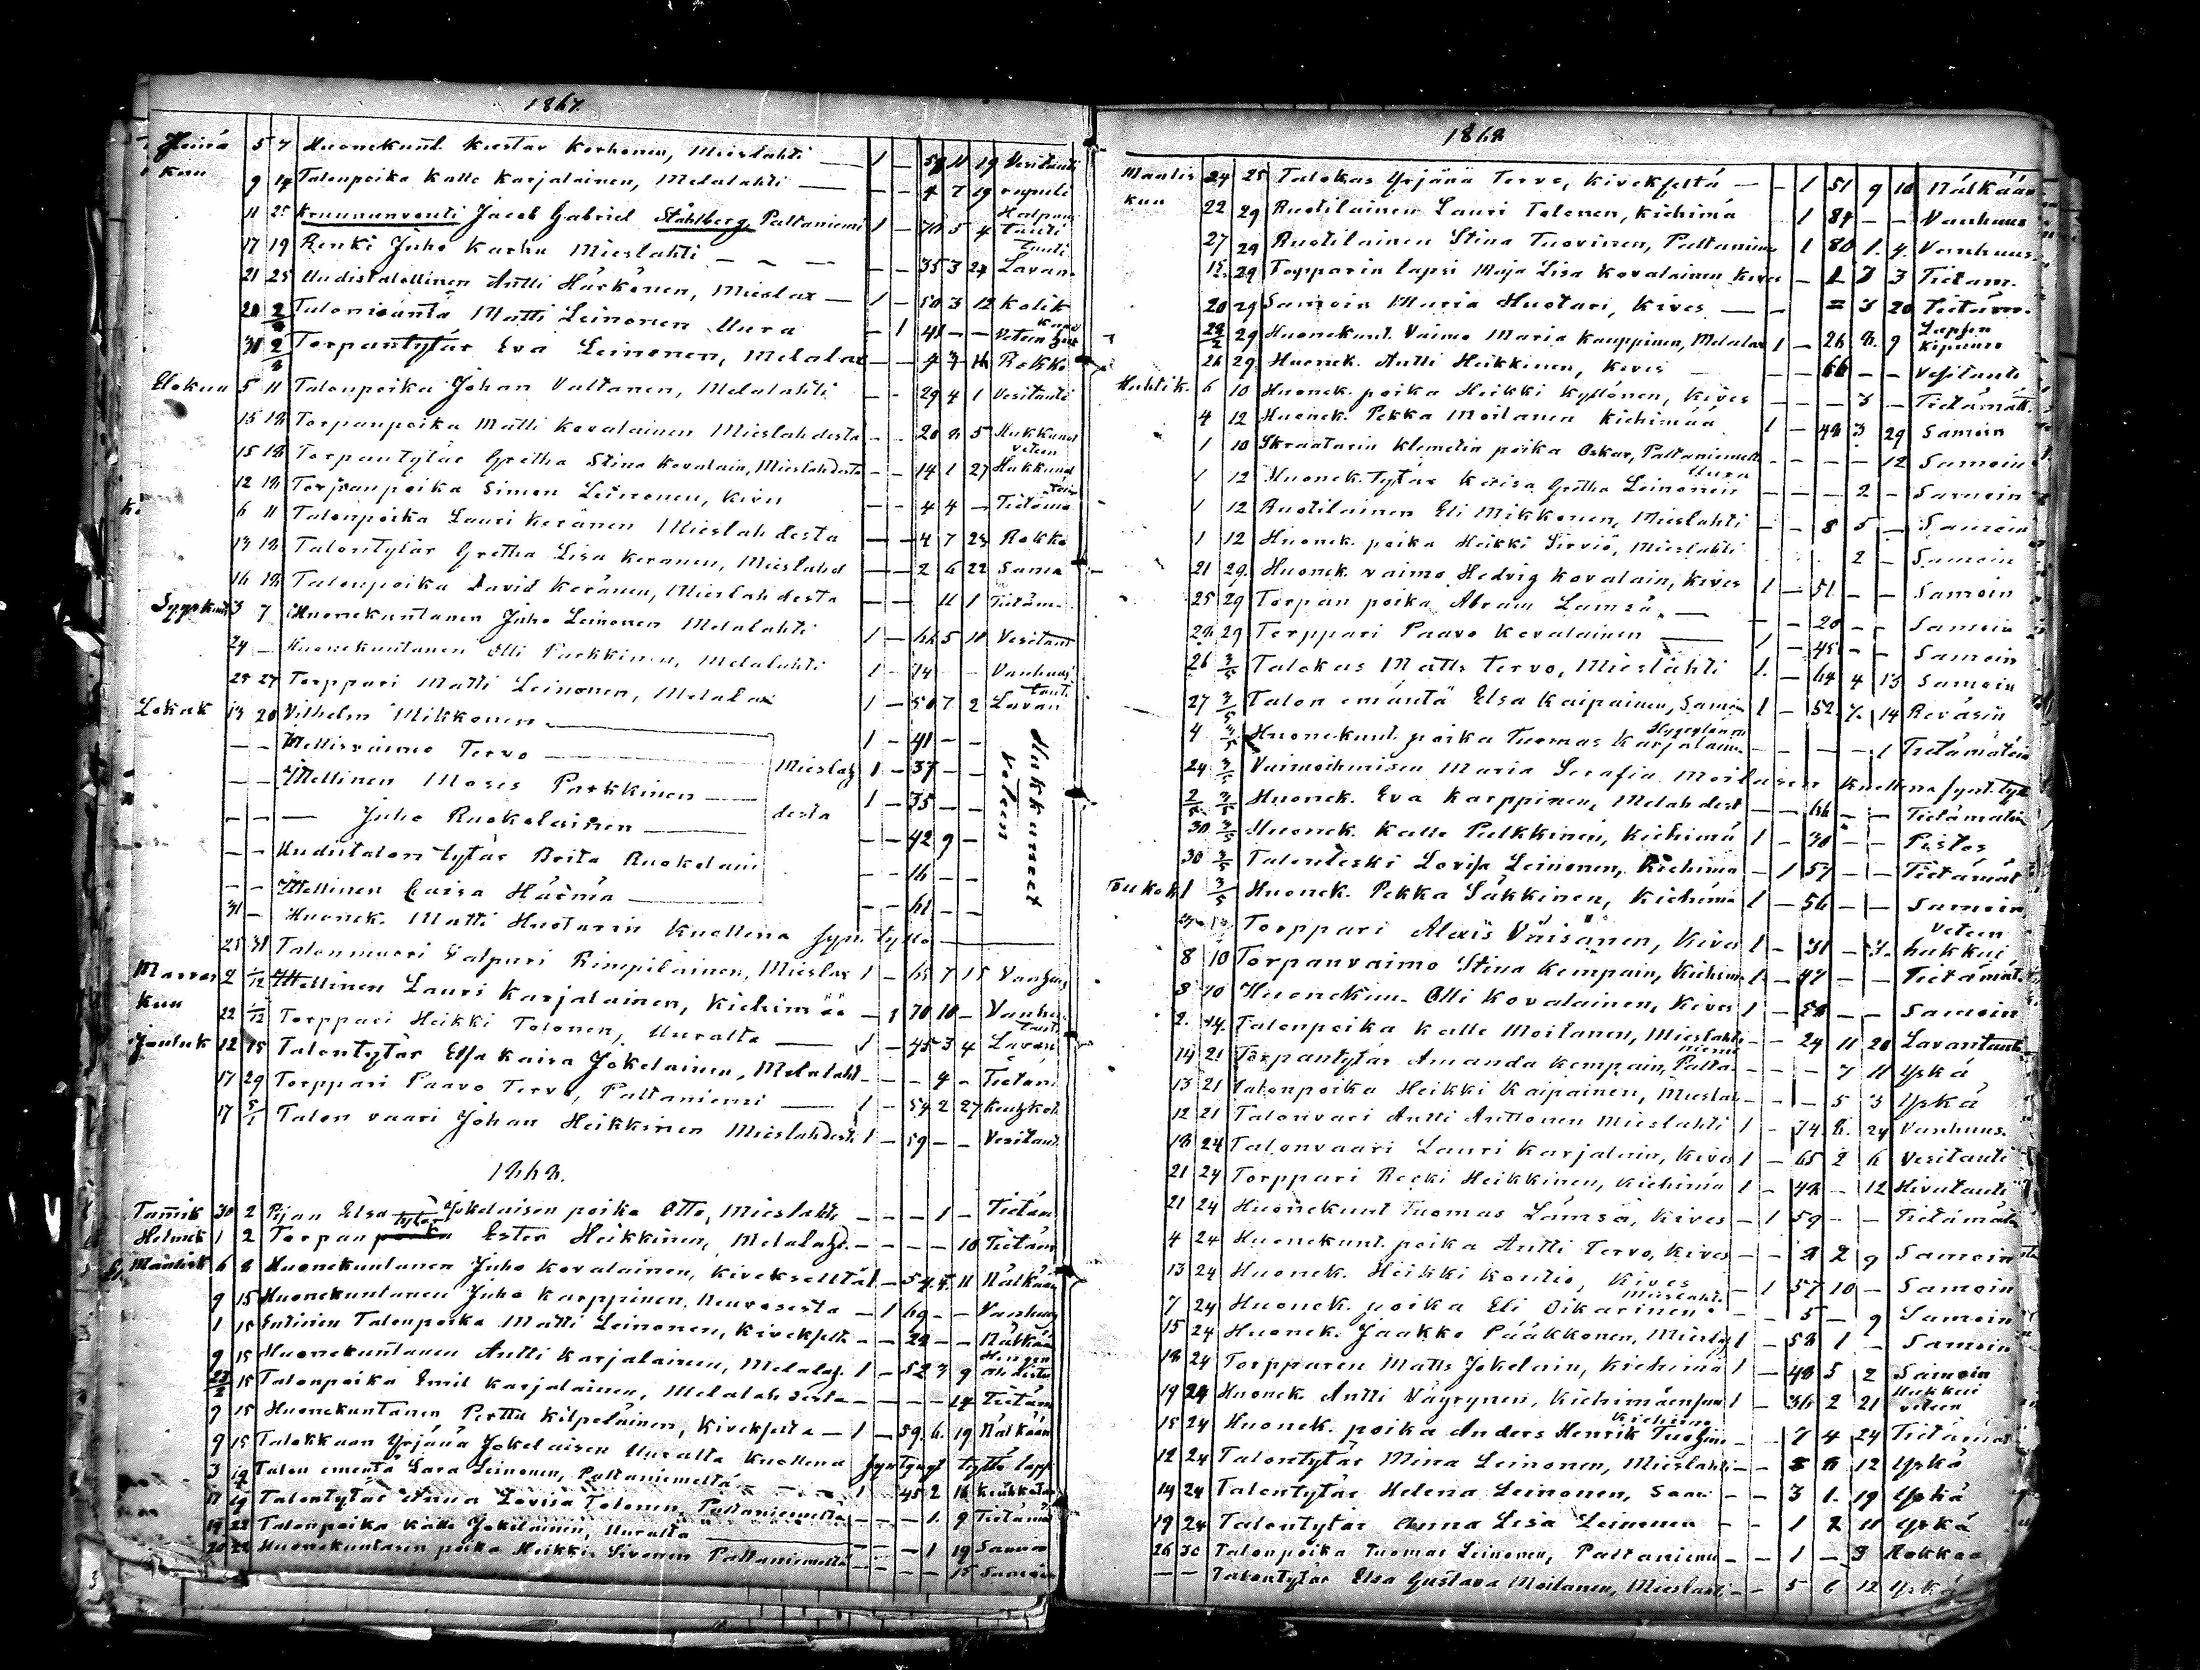 1867.
Heinä 5 7 Huonekunt. Kustav Korhonen, Mieslahti — 1 — 11 19 Vesitauti
kuu 9 14 Talonpoika Kalle Karjalainen, Melalahti — — — 4 7 19 rupuli
11 25 Kruununvouti Jacob Gabriel Ståhlberg, Paltaniemi 1 — 5 4 Halpau tauti
17 19 Renki Juho Karhu Mieslahti — — — 35 3 24 Lavan tauti
21 25 Uudistalollinen Antti Härkönen, Mieslax — 1 — 50 3 12 Kolik
20 2/8 Talonisäntä Matti Leinonen Uura — 1 41 — —
31 2/8 Torpantytär Eva Leinonen, Melalax — — 4 3 16 Rokko
Elokuu 5 11 Talonpoika Johan Valtanen, Melalahti — — 29 4 1 Vesitauti
15 18 Torpanpoika Matti Kovalainen Mieslahdesta — — 20 8 5 Hukkunut veteen
15 18 Torpantytär Gretha Stina Kovalain, Mieslahdesta — — 14 1 27 Hukkunut
12 18 Torpanpoika Simon Leinonen, Kives — — 4 4 — Tietämä
6 11 Talonpoika Lauri Keränen Mieslahdesta — — 4 7 23 Rokko
13 18 Talontytär Gretha Lisa Keränen, Mieslahd — — 2 6 22 Sama
16 18 Talonpoika David Keränen, Mieslahdesta — — 11 1 Tietäm.
Syyskuu 3 7 Huonekuntanen Juho Leinonen Melalahti 1 — 66 5 10 Vesitaut
24 — Huonekuntanen Olli Parkkinen, Melalahti 1 — 74 Vanhuus
25 27 Torppari Matti Leinonen, Melalax 1 — 50 7 2 Lavan taut.
Lokak 13 20 Vilhelm Mikkonen — 1 — 41 — —
— — Itellisvaimo Tervo — Mieslah 1 — 37 — —
— — Itellinen Moses Parkkinen — desta 1 — 35 — —
— — — Juho Ruokolainen — — — 42 9 —
— — Uudistalon tytär Brita Ruokolain — — 16 — —
— — Itellinen Caisa Härmä — — — 61 — —
Hukkuneet veteen
31 — Huonek. Matti Huotarin kuollena syn. tyttö —
25 31 Talonmuori Valpuri Rimpiläinen, Mieslax 1 — 65 7 15 Vanhuus
Marras 2 1/12 Itellinen Lauri Karjalainen, Kiehimää — 1 70 10 — Vanhu.
kuu 22 1/12 Torppari Heikki Tolonen, Uuralta — 1 — 45 3 4 Lavan taut.
Jouluk 12 15 Talontytär Elsa Kaisa Jokelainen, Melalaht — — — 4 — Tietäm
17 29 Torppari Paavo Tervo, Paltaniemi — 1 — 54 2 27 Keuhkot.
17 5/1 Talon vaari Johan Heikkinen Mieslahdest. 1 — 59 — — Vesitaut.
1868.
Tamik 30 2 Piian Elsa Jokelaisen poika Otto, Mieslahti — — — 1 — Tietäm
Helmik 1 2 Torpan tytär Ester Heikkinen, Melalahd. — — — — 10 Tietäm
Maalisk 6 8 Huonekuntanen Juho Kovalainen, Kivekseltä 1 — 54 7 11 Nälkään
9 15 Huonekuntanen Juho Karppinen Neuvosesta — 1 69 — — Vanhuus
1 15 Entinen Talonpoika Matti Leinonen, Kivekselt — — 22 — — Nälkää
9 15 Huonekuntanen Antti Karjalainen, Melalah. 1 — 52 3 9 Hengen
15 Talonpoika Emil Karjalainen, Melalahdesta — — — — 14 Tietäm
9 15 Huonekuntanen Perttu Kilpeläinen, Kivekselta — 1 — 59 6 19 Nälkään
9 15 Talokkaan Yrjänä Jokelaisen Uuralta kuollena syntynyt tyttö laps
3 19 Talon emäntä Sara Leinonen, Paltaniemeltä — — 1 45 2 16 Keuhkotau
17 19 Talontytär Anna Lovisa Tolonen, Paltaniemeltä — — — 1 9 Tietämä
19 22 Talonpoika Kalle Jokelainen, Uuralta — — — 1 19 Samoin
20 22 Huonekuntasen poika Heikki Sivonen Paltaniemeltä — — — — 15 Samoin
1868
Maalis 24 25 Talokas Yrjänä Tervo, Kivekseltä — — 1 51 9 10 Nälkään
kuu 22 29 Ruotilainen Lauri Tolonen, Kiehimä 1 84 — — Vanhuus
27 29 Ruotilainen Stina Tuovinen, Paltaniemi 1 80 1 4 Vanhuus
15 29 Torpparin lapsi Maja Lisa Kovalainen Kives — 1 7 3 Tietäm.
20 29 Samoin Maria Huotari, Kives — — — 3 20 Tietäm.
29 Huonekunt. Vaimo Maria Kauppinen, Melalax 1 — 26 8 9 Lapsen kipuun
26 29 Huonek. Antti Heikkinen, Kives — — 66 — — Vesitauti
Huhtik. 6 10 Huonek. poika Heikki Kyllönen, Kives — — — 3 — Tietämätt.
4 12 Huonek. Pekka Moilanen Kiehimää 1 — 48 3 29 Samoin
1 10 Skraatarin Klemetin poika Oskar, Paltaniemelt — — — — 12 Samoin
1 12 Huonek. tytär Kaisa Gretha Leinonen Uura — — — 2 — Samoin
1 12 Ruotilainen Eli Mikkonen, Mieslahti — — 8 5 — Samoin
1 12 Huonek. poika Heikki Sirviö, Mieslahti 2 — Samoin
21 29 Huonek. vaimo Hedvig Kovalain, Kives 1 — 51 — — Samoin
25 29 Torpan poika Abram Lämsä — — 20 — — Samoin
28 29 Torppari Paavo Kovalainen — 1 — 45 — — Samoin
26 3/5 Talokas Matts Tervo, Mieslahti 1 — 64 4 13 Samoin
27 3/5 Talon emäntä Elsa Kaipainen, Samoin 1 — 52 7 14 Reväsin
4 3/5 Huonekunt. poika Tuomas Karjalainen — — — — 1 Tietämätön
24 3/5 Vaimoihmisen Maria Serafia Moilasen kuollena synt. tyt
2/5 3/5 Huonek. Eva Karppinen, Melahdest — — 66 — — Tietämätön
30 3/5 Huonek. Kalle Pulkkinen, Kiehimä 1 — 30 — — Pistos
30 3/5 Talonleski Lovisa Leinonen, Kiehimä — 1 57 — — Tietämät
Toukok 1 3/5 Huonek. Pekka Säkkinen, Kiehimä 1 — 56 — — Samoin
Torppari Alexis Väisänen, Kives 1 — 31 — 3 Veteen hukkui
8 10 Torpanvaimo Stina Kemppain, Kiehim. 1 — 47 — — Tietämät.
8 10 Huonekun. Olli Kovalainen, Kives 1 — 58 — — Samoin
2 14 Talonpoika Kalle Moilanen, Mieslahti — — 24 11 20 Lavantaut
14 21 Torpantytär Amanda Kemppain, Palta niemi — — — 7 11 Yskä
13 21 Talonpoika Heikki Kaipainen, Mieslah — — — 5 3 Yskä
12 21 Talonvaari Antti Anttonen Mieslahti 1 — 74 8 24 Vanhuus.
18 24 Talonvaari Lauri Karjalain, Kives 1 — 65 2 6 Vesitauti
21 24 Torppari Recki Heikkinen, Kiehimä 1 — 42 — 12 Hivutauti
21 24 Huonekunt Tuomas Lämsä, Kives — 1 59 — — Tietämät
4 24 Huonekunt. poika Antti Tervo, Kives — — 2 2 9 Samoin
13 24 Huonek. Heikki Kontio, Kives — 1 57 10 — Samoin
7 24 Huonek. poika Eli Oikarinen Mieslahti — — 5 — 9 Samoin
15 24 Huonek. Jaakko Pääkkonen, Miesla 1 — 58 1 — Samoin
18 24 Torpparen Matts Jokelain, Kiehimä 1 — 48 5 2 Samoin
19 24 Huonek. Antti Väyrynen, Kiehimäensuu 1 — 36 2 21 Hukkui veteen
15 24 Huonek. poika Anders Henrik Kiehimä — — 7 4 24 Tietämät
12 24 Talontytär Mina Leinonen, Mieslahti — — 5 8 12 Yskä
14 24 Talontytär Helena Leinonen, Sam. — — 3 1 19 Yskä
19 24 Talontytär Anna Lisa Leinonen — — 1 2 11 Yskä
26 30 Talonpoika Tuomas Leinonen, Paltaniemi — — 1 — 3 Rokkoa
— — Talontytär Elsa Gustava Moilanen, Mieslahti — — 5 6 12 Yskä